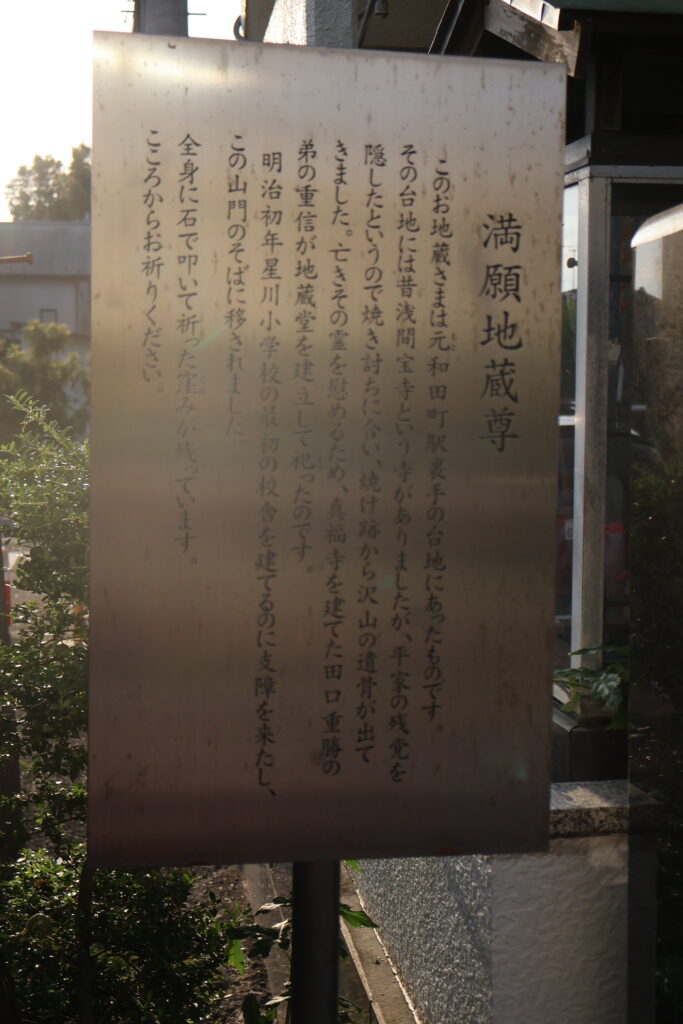 満願地蔵尊
このお地蔵さまは元和田町駅裏手の台地にあったものです。
その台地には昔浅間宝寺という寺がありましたが、平家の残党を
隠したというので焼き討ちに合い、焼け跡から沢山の遺骨が出て
きました。亡きその霊を慰めるため、真福寺を建てた田口重勝の
弟の重信が地蔵堂を建立して祀ったのです。
明治初年星川小学校の最初の校舎を建てるのに支障を来たし、
この山門のそばに移されました。
全身に石で叩いて祈った窪みが残っています。
こころからお祈りください。